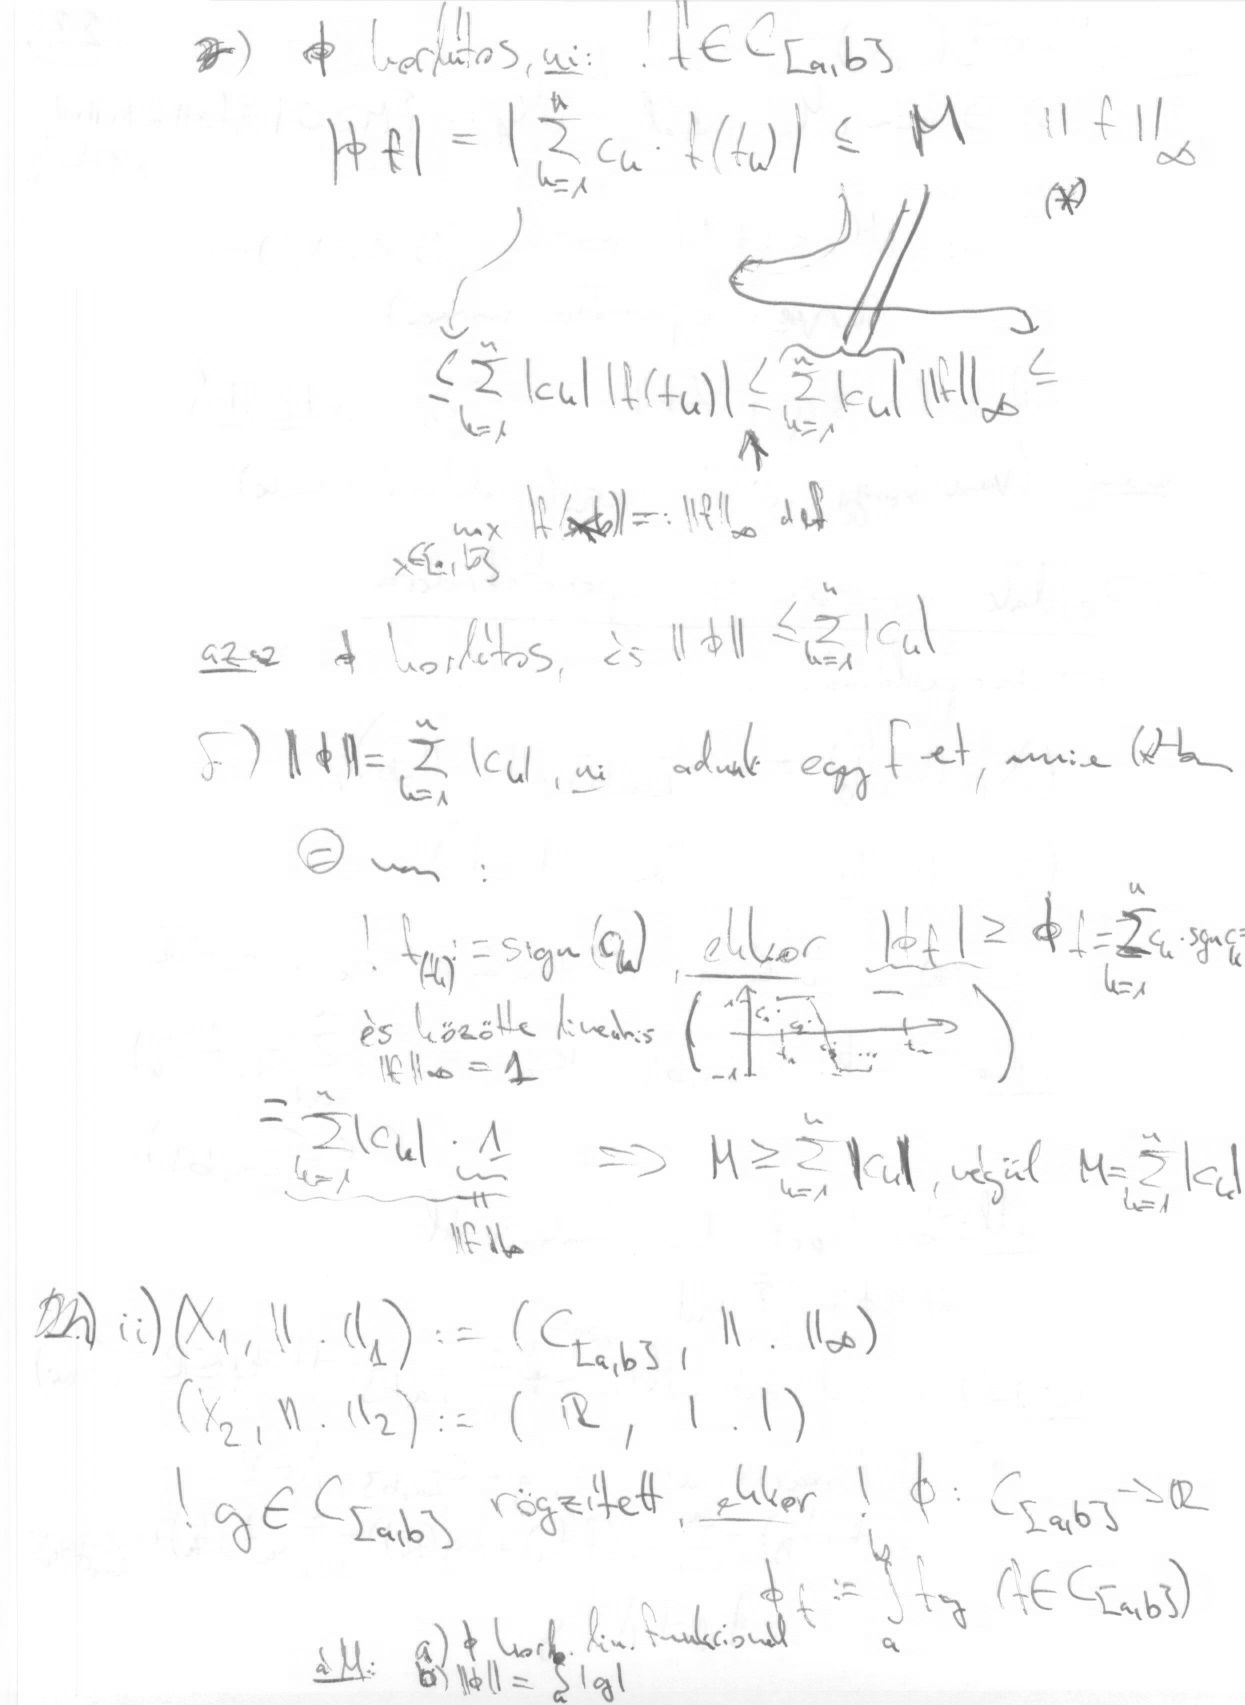 γ) ϕ korlátos, ui: ! f ∈ C[a,b]
|ϕf| = | Σ_{k=1}^{n} c_k · f(t_k) | ≤ M ||f||_∞
(*)
≤ Σ_{k=1}^{n} |c_k| |f(t_k)| ≤ Σ_{k=1}^{n} |c_k| ||f||_∞ ≤
↑
max_{x∈[a,b]} |f(x)| =: ||f||_∞ def
azaz ϕ korlátos, és ||ϕ|| ≤ Σ_{k=1}^{n} |c_k|
δ) ||ϕ|| = Σ_{k=1}^{n} |c_k|, ui adunk egy f et, mire (*)-ban
⊜ van :
! f(t_k) := sign(c_k), ekkor |ϕf| ≥ ϕf = Σ_{k=1}^{n} c_k · sgn c_k =
és közötte lineáris
||f||_∞ = 1
1 -1 t_1 t_n ...
= Σ_{k=1}^{n} |c_k| · 1 ⇒ M ≥ Σ_{k=1}^{n} |c_k|, végül M = Σ_{k=1}^{n} |c_k|
||f||_∞
ii) (X_1, ||.||_1) := (C[a,b], ||.||_∞)
(X_2, ||.||_2) := (ℝ, |.|)
! g ∈ C[a,b] rögzített, ekkor ! ϕ: C[a,b] → ℝ
ϕf := ∫_a^b fg (f ∈ C[a,b])
áM: a) ϕ korl. lin. funkcionál
b) ||ϕ|| = ∫_a^b |g|